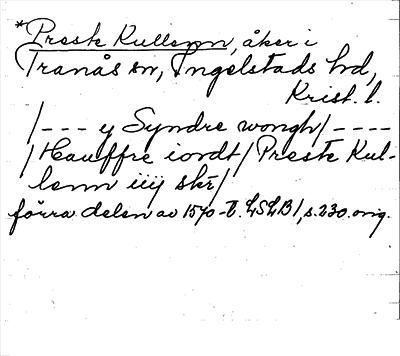 *Preste Kullenn, åker i
Tranås sn, Ingelstads hd,
Krist. l.
/--- y Syndre wongh/----
/Hauffre iordt/Preste Kul-
lenn iiij skr/
förra delen av 1570-t. LSLB1, s.230. orig.